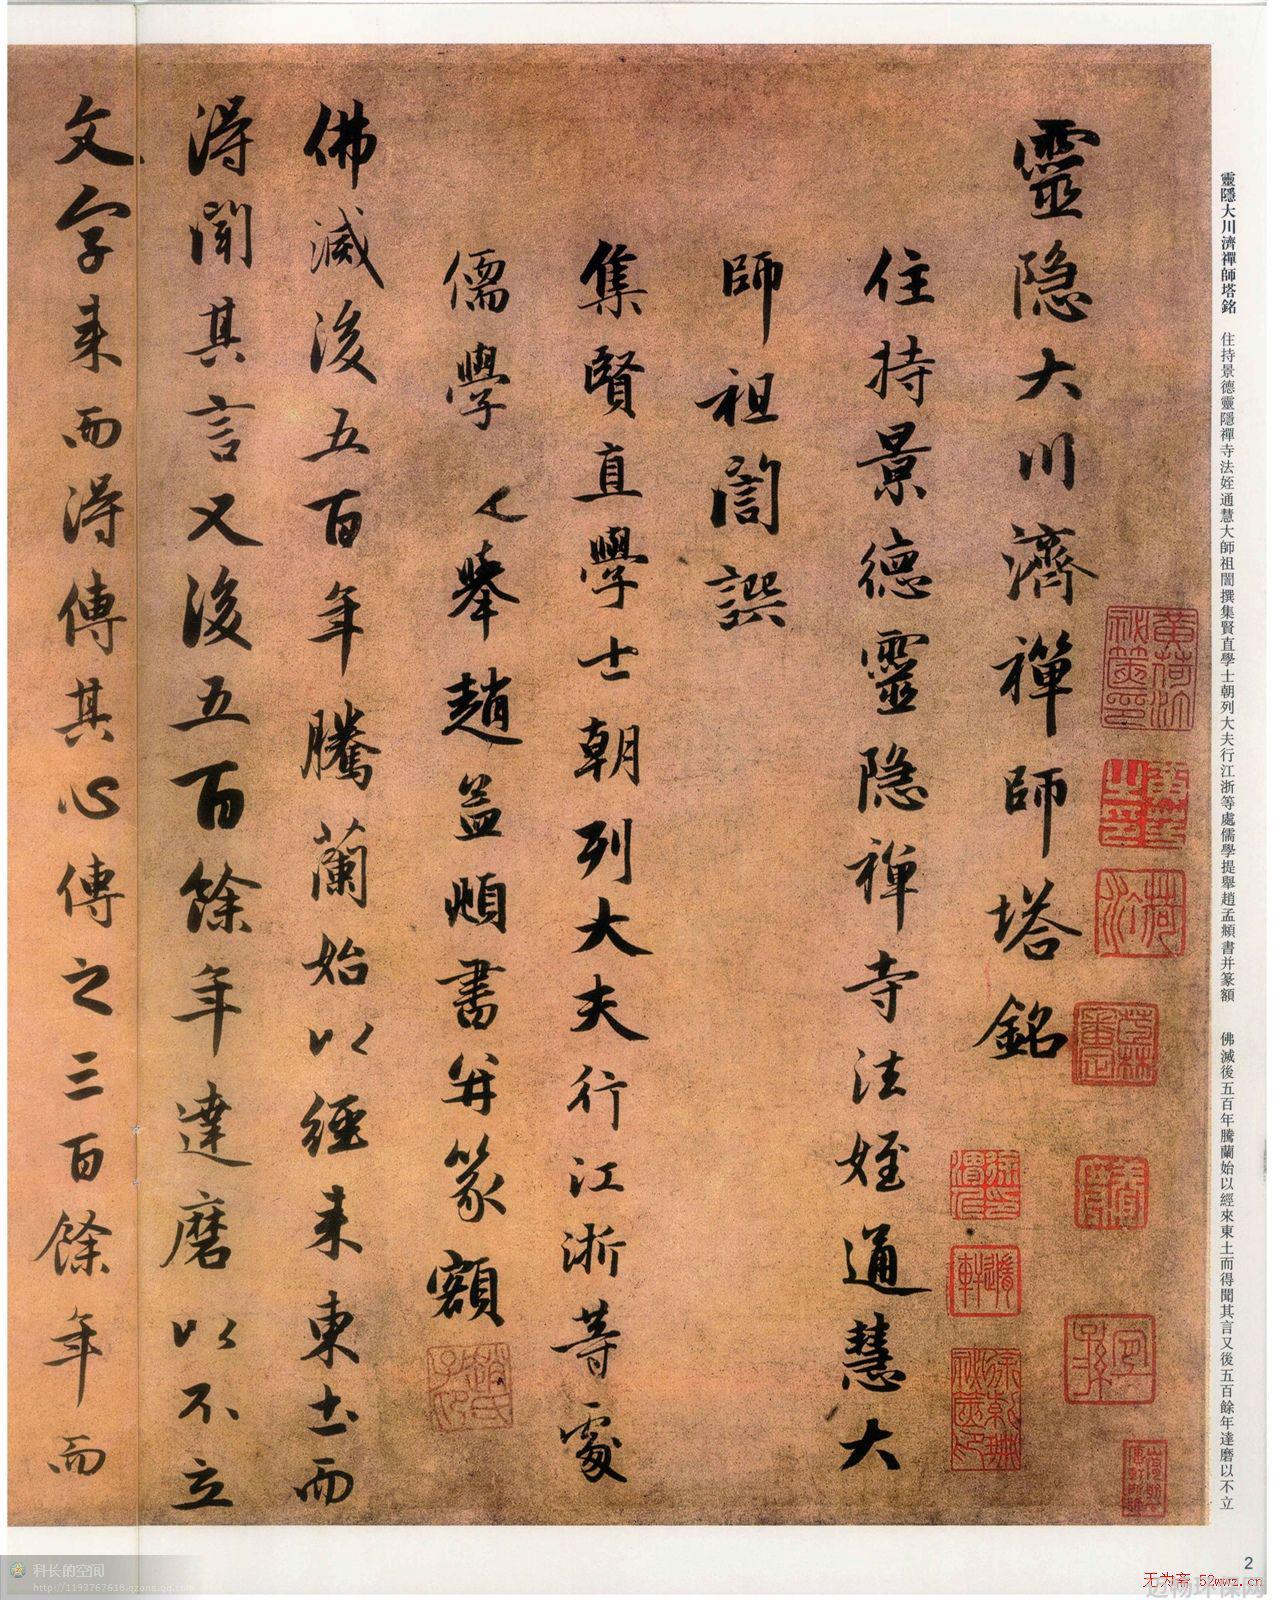 靈隱大川濟禪師塔銘
住持景德靈隱禪寺法姪通慧大
師祖誾譔
集賢直學士朝列大夫行江浙等處
儒學 舉趙孟頫書并篆額
佛滅後五百年騰蘭始以經来東土而
得聞其言又後五百餘年達磨以不立
文字来而得傳其心傳之三百餘年而
靈隱大川濟禪師塔銘 住持景德靈隱禪寺法姪通慧大師祖誾撰集賢直學士朝列大夫行江浙等處儒學提舉趙孟頫書并篆額 佛滅後五百年騰蘭始以經來東土而得聞其言又後五百餘年達磨以不立
2
科长的空间
http://1193767618.qzone.qq.com
无为斋 52wwz.cn